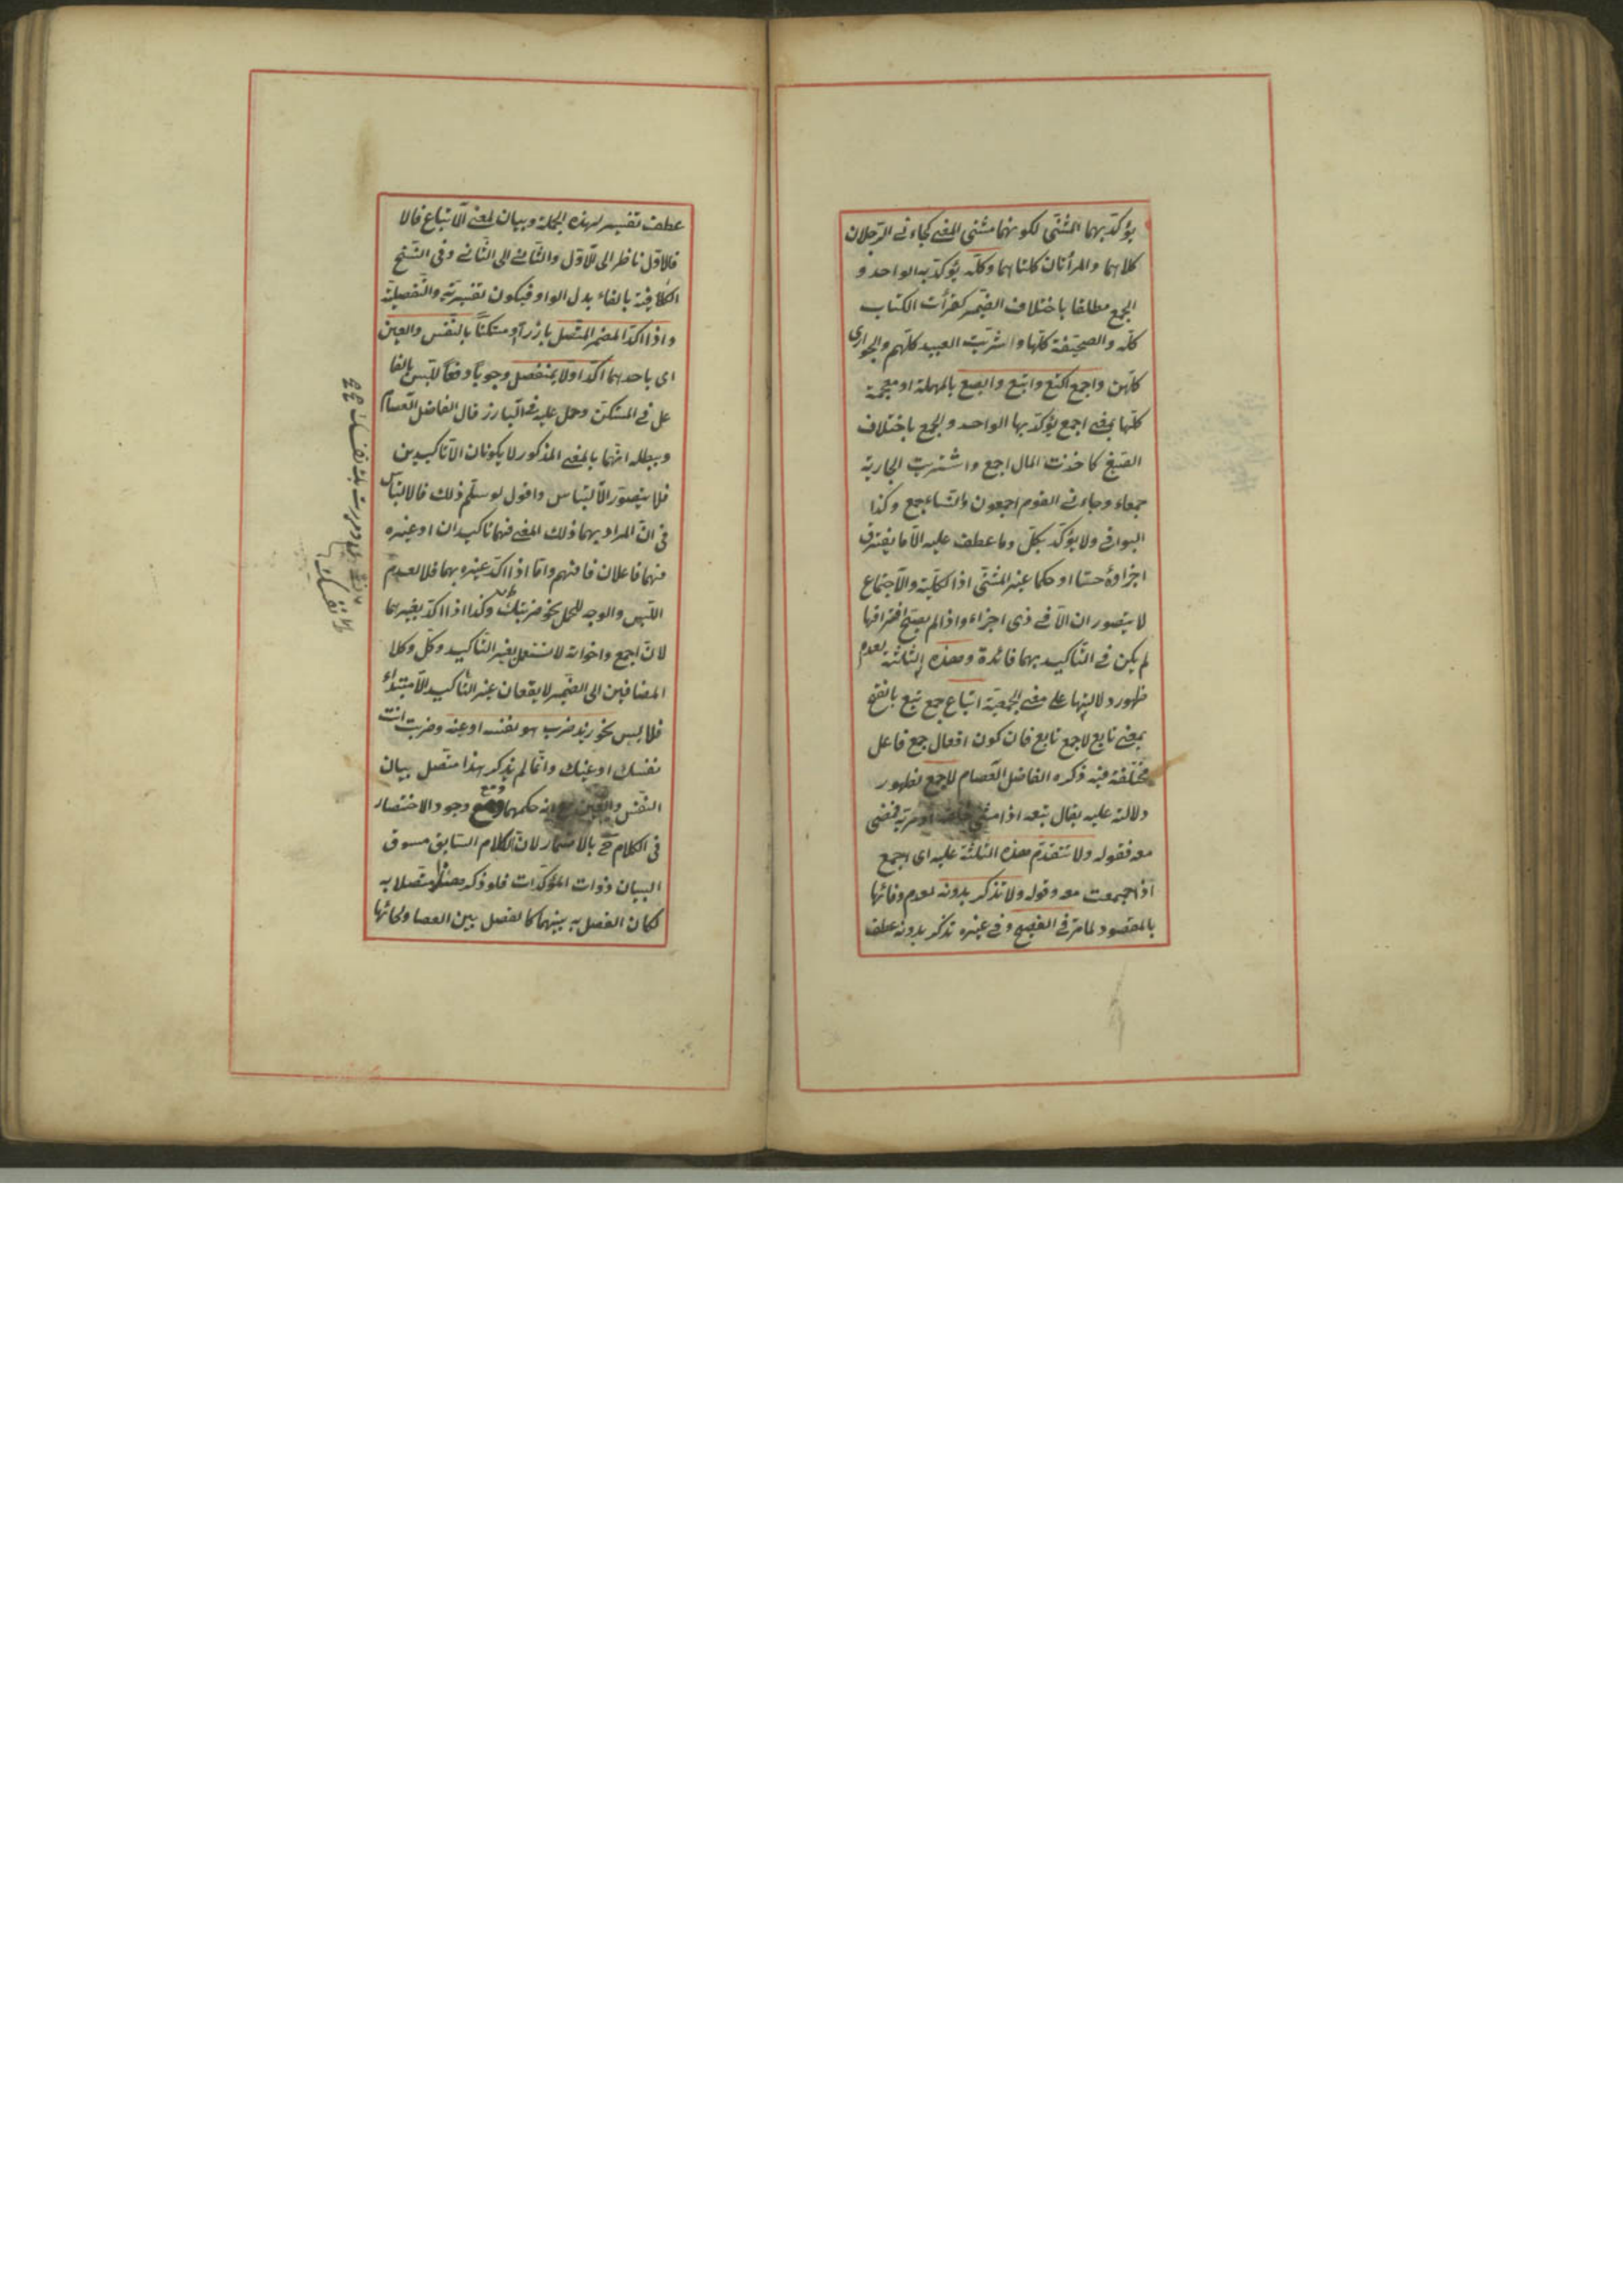 يؤكّد بهما المثنّى لكونهما مثنى المعنى كجاءنى الرّجلان
كلاهما والمرأتان كلتاهما وكلّه يؤكّد به الواحد و
الجمع مطلقا باختلاف الضّمير كقرأت الكتاب
كلّه والصحيفة كلّها واشتريت العبيد كلّهم والجوارى
كلّهن واجمع اكتع وابتع وابصع بالمهملة او معجمة
كلّها بمعنى اجمع يؤكّد بها الواحد والجمع باختلاف
الصّيغ كاخذت المال اجمع واشتريت الجارية
جمعاء وجاءنى القوم اجمعون والنّساء جمع وكذا
البواقى ولا يؤكّد بكلّ وما عطف عليه الّا ما يفترق
اجزاؤه حسّا او حكما غير المثنّى اذ الكلّية والاجتماع
لا يتصوران الّا فى ذى اجزاء واذا لم يصحّ افتراقها
لم يكن فى التّأكيد بهما فائدة وهذه الثّلثة لعدم
ظهور دلالتها على معنى الجمعيّة اتباع جمع تبع بالفتح
بمعنى تابع لا جمع تابع فان كون افعال جمع فاعل
مختلفة فيه ذكره الفاضل العصام لاجمع لظهور
دلالته عليه يقال تبعه اذا مشى خلفه او مرّ به فمضى
معه فقوله ولا تتقدّم هذه الثلثة عليه اى اجمع
اذا اجتمعت معه وقوله ولا تذكر بدونه لعدم وفائها
بالمقصود لما مرّ فى الفصيح وفى غيره تذكر بدونه عطف
عطف تفسير لهذه الجملة وبيان لمعنى الاتباع فالا
فالاوّل ناظر الى الاوّل والثّانى الى الثّانى وفى النّسخ
الكافية بالفاء بدل الواو فيكون تفسيريّة والتّفصيليّة
واذا اكّد المضمر المتّصل بارزا او مستكنّا بالنّفس والعين
اى باحدهما اكّد اوّلا بمنفصل وجوبا دفعا للّبس بالفا
عل فى المستكن وحمل عليه البارز قال الفاضل العصام
ويبطله انّهما بالمعنى المذكور لا يكونان الّا تأكيدين
فلا يتصوّر الالتباس واقول لو سلّم ذلك فالالتباس
فى انّ المراد بهما ذلك المعنى فهما تأكيدان او غيره
فهما فاعلان فافهم وامّا اذا اكّد غيره بهما فلا لعدم
اللّبس والوجه للحمل نحو ضربتك وكذا اذا اكّد بغيرهما
لانّ اجمع واخواته لا تستعمل بغير التّأكيد وكلّ وكلا
المضافين الى الضّمير لا يقعان غير التّأكيد الّا مبتداء
فلا لبس نحو زيد ضرب هو نفسه او عينه وضربت انت
نفسك او عينك وانّما لم يذكر هذا متّصل ببيان
النّفس والعين حكمهما مع وجود الاختصار
فى الكلام ح بالاضمار لانّ الكلام السّابق مسوق
لبيان ذوات المؤكّدات فلو ذكر هذا متّصلا به
لكان الفصل به بينهما كالفصل بين العصا ولحائها
ومررت بك نفسك